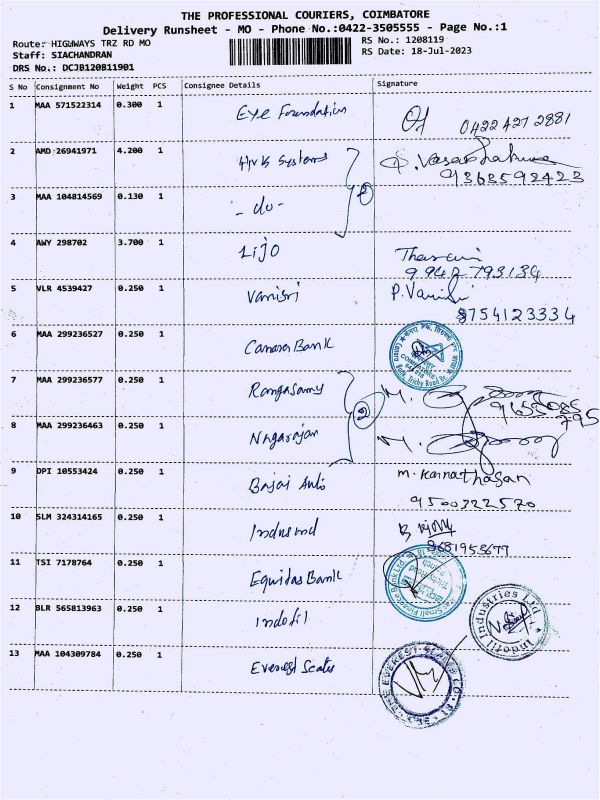 THE PROFESSIONAL COURIERS, COIMBATORE
Delivery Runsheet - MO - Phone No.:0422-3505555 - Page No.:1
Route: HIGHWAYS TRZ RD MO RS No.: 1208119
Staff: SIACHANDRAN RS Date: 18-Jul-2023
DRS No.: DCJB120811901
S No Consignment No Weight PCS Consignee Details Signature
1 MAA 571522314 0.300 1 Eye Foundation 0422 427 2881
2 AMD 26941971 4.200 1 Systems
9363592423
3 MAA 104814569 0.130 1 - do -
2
4 AWY 298702 3.700 1 LIJO
9942793134
5 VLR 4539427 0.250 1 Vanisri P. Vanisri
8754123334
6 MAA 299236527 0.250 1 Canara Bank
7 MAA 299236577 0.250 1 Rangasamy M.
2 9655085
795
8 MAA 299236463 0.250 1 Nagarajan M.
9 DPI 10553424 0.250 1 Bajaj Auto M. Kannathasan
9500322570
10 SLM 324314165 0.250 1 Indusind
9681953677
11 TSI 7178764 0.250 1 Equitas Bank
12 BLR 565813963 0.250 1 Indofil Indofil Industries Ltd
13 MAA 104309784 0.250 1 Everest Scales THE EVEREST SCALES CO.